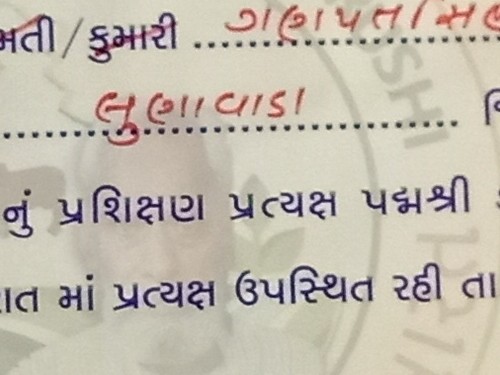 મતી / કુમારી ગણપતસિંહ
લુણાવાડા
નું પ્રશિક્ષણ પ્રત્યક્ષ પદ્મશ્રી
માં પ્રત્યક્ષ ઉપસ્થિત રહી તા